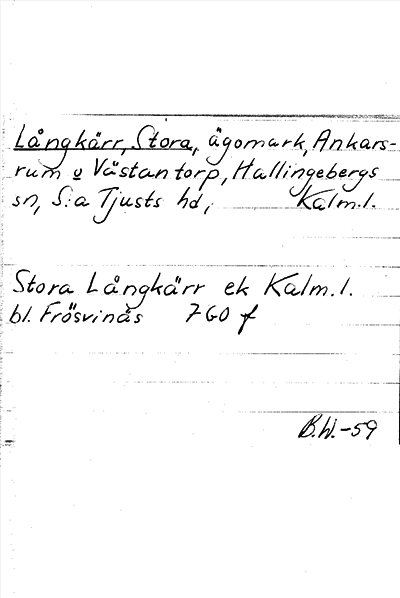 Långkärr, Stora, ägomark, Ankars-
rum o Västantorp, Hallingebergs
sn, S:a Tjusts hd, Kalm.l.
Stora Långkärr ek Kalm.l.
bl. Frösvinås 7G0 f
B.W.-59